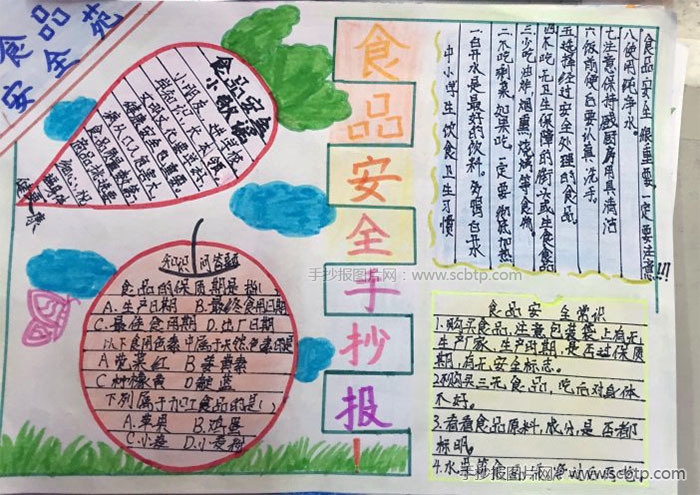 食品
安全苑
食品安全
小歌谣
小朋友，进学校
健康安全也重要
病从口入危害大
健康
知识问答题
食品的保质期是指（）
A.生产日期 B.最终食用日期
C.最佳食用期 D.出厂日期
以下食用色素中属于天然色素的是
A苋菜红 B姜黄素
C柠檬黄 D靛蓝
下列属于加工食品的是（）
A.苹果 B.鸡蛋
C.小麦 D.小麦粉
食品安全手抄报！
中小学生饮食卫生习惯
一.白开水是最好的饮料。多喝白开水
二.不吃剩菜，如果吃一定要彻底加热
三.少吃油炸、烟熏、烧烤等食物。
四.不吃无卫生保障的街头或生食食品
五.选择经过安全处理的食品
六.饭前便后要认真洗手。
七.注意保持厨房用具清洁
八.使用纯净水。
食品安全很重要，一定要注意!!!
食品安全常识
1.购买食品，注意包装袋上有无
生产厂家、生产日期，是否过保质
期，有无安全标志。
2.购买三无食品，吃后对身体
不好。
3.看看食品原料，成分，是否都
标明。
手抄报图片网 - www.scbtp.com
手抄报图片网 - www.scbtp.com